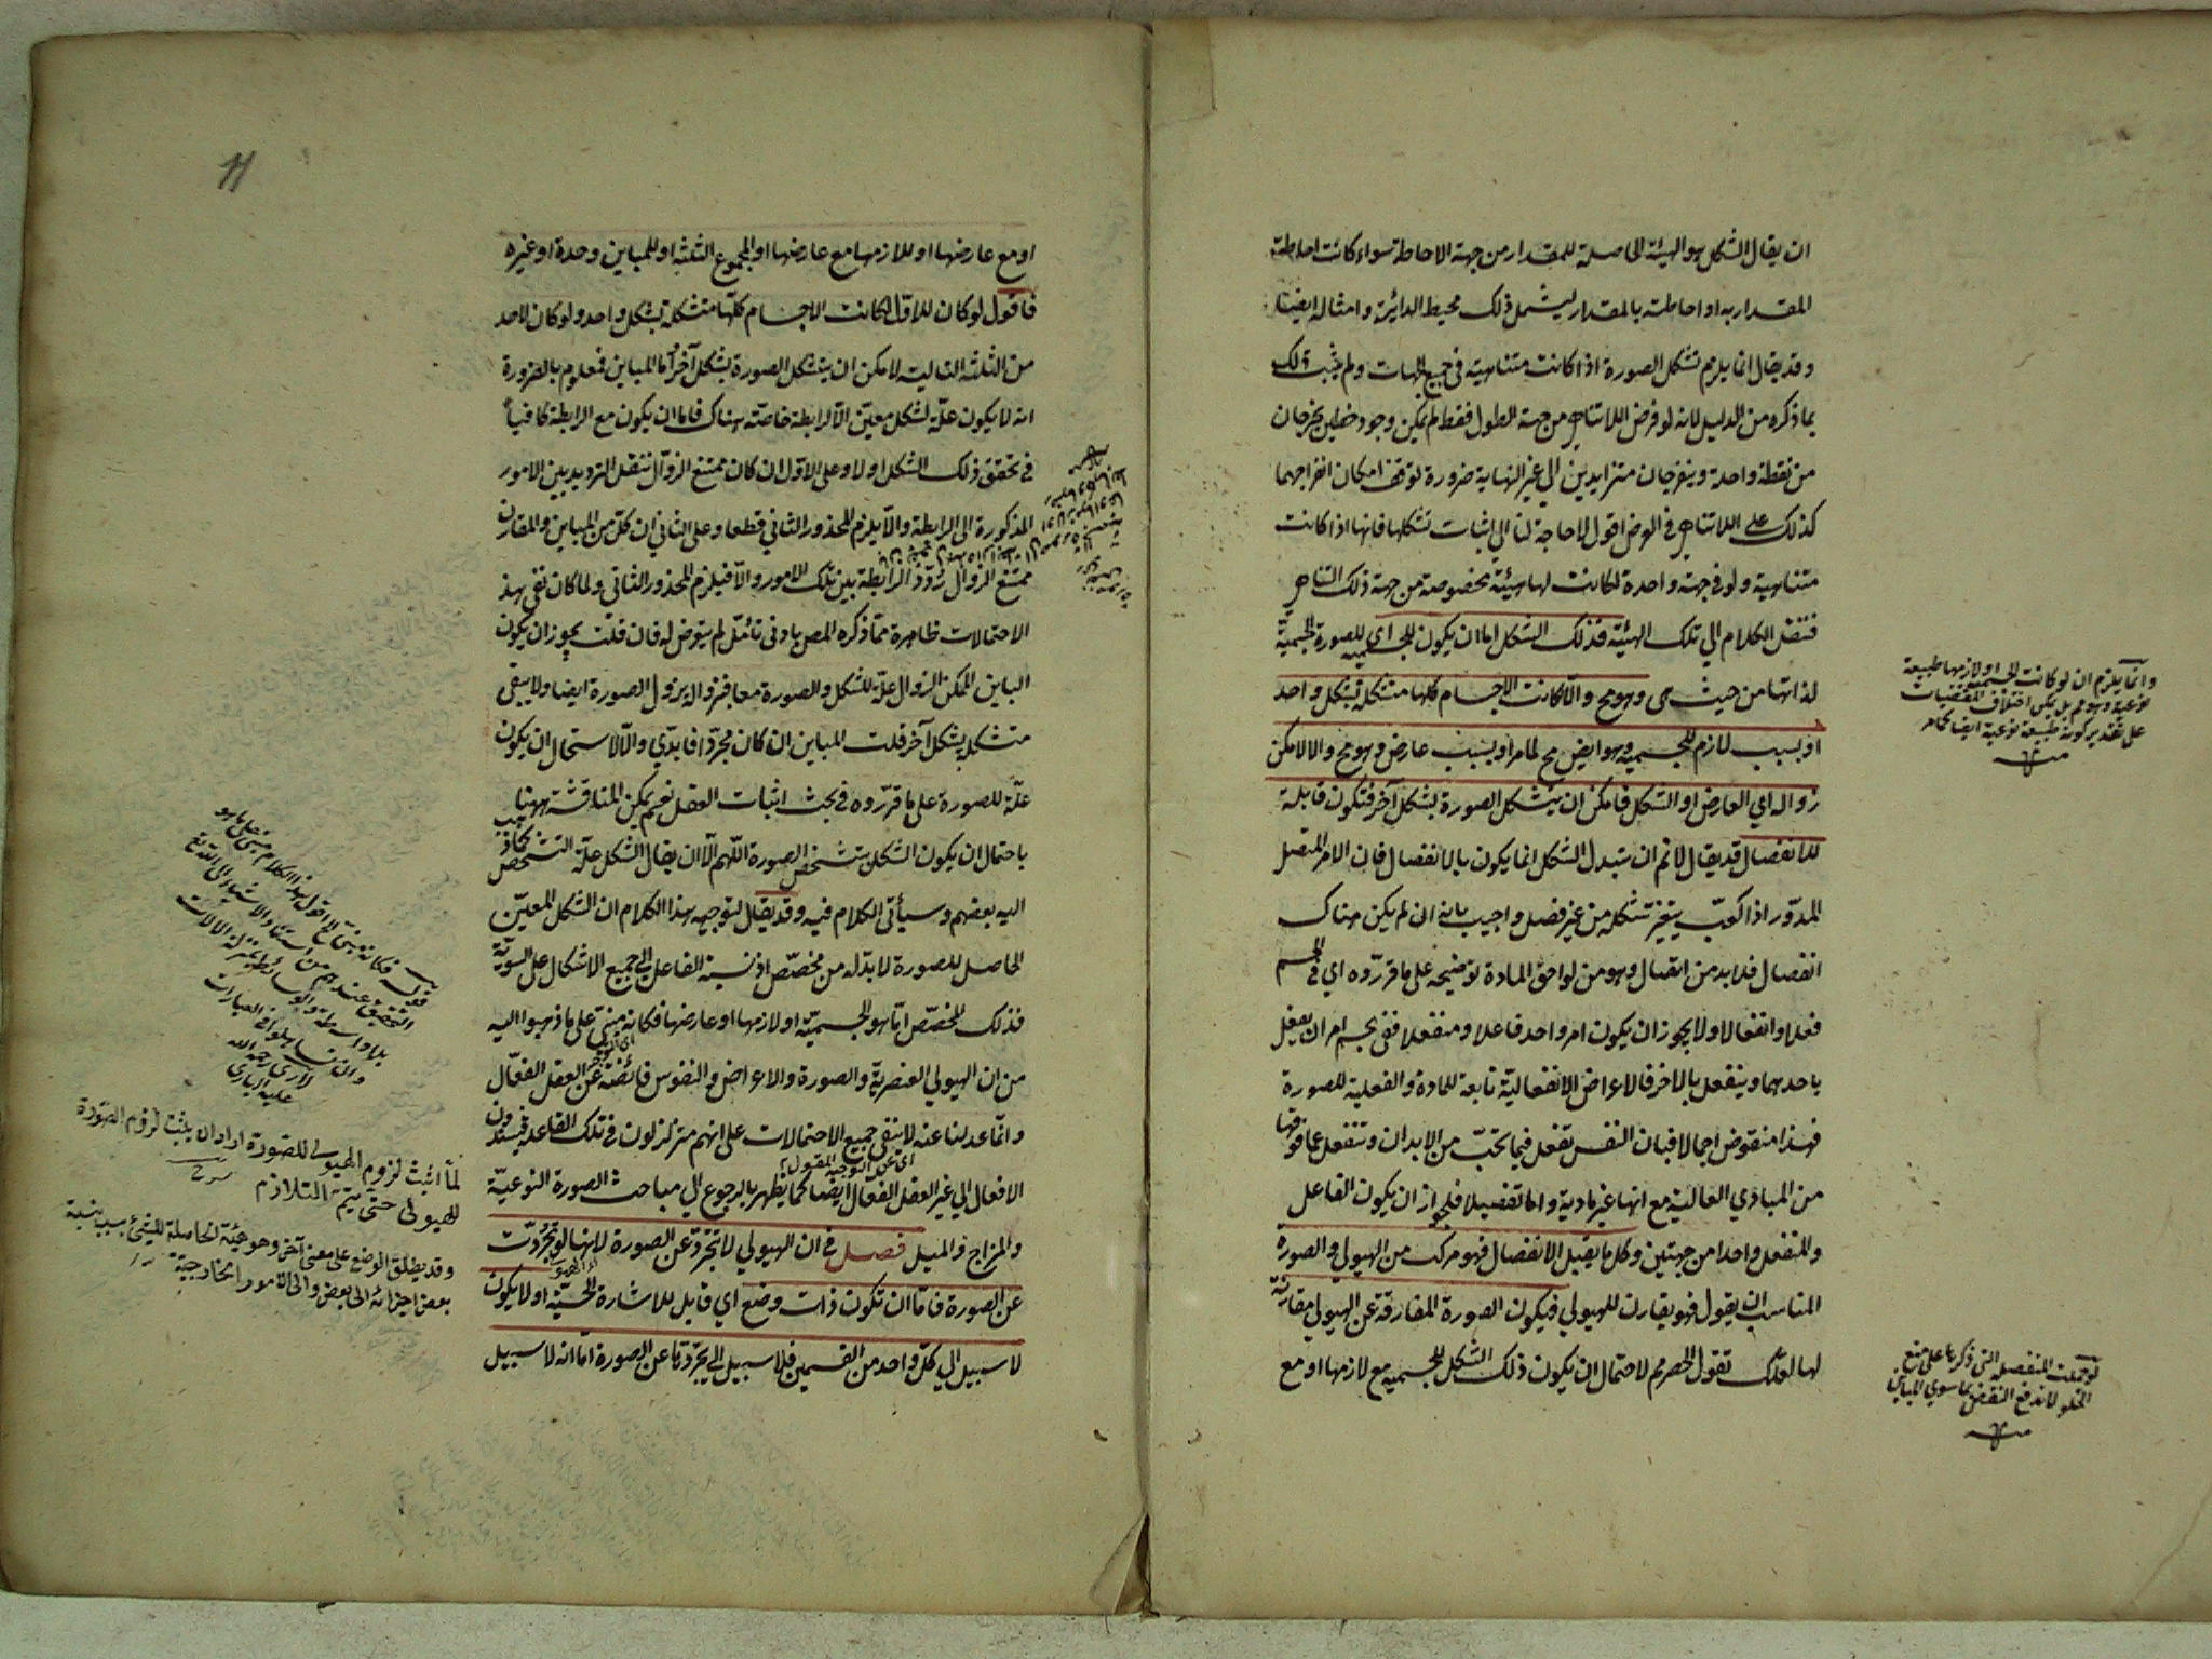 ان يقال الشكل هو الهيئة الحاصلة للمقدار من جهة الاحاطة سواء كانت احاطة
المقدار به او احاطته بالمقدار ليشمل ذلك محيط الدائرة وامثاله ايضا
وقد يقال انما يلزم تشكل الصورة اذا كانت متناهية في جميع الجهات ولم يثبت ذلك
بما ذكره من الدليل لانه لو فرض اللاتناهي من جهة الطول فقط لم يمكن وجود خطين يخرجان
من نقطة واحدة وينفرجان متزايدين الي غير النهاية ضرورة توقف امكان انفراجهما
كذلك علي اللاتناهي في العرض اقول لا حاجة لنا الي اثبات تشكلها فانها اذا كانت
متناهية ولو في جهة واحدة لكانت لها هيئة مخصوصة من جهة ذلك التناهي
فننقل الكلام الي تلك الهيئة فذلك الشكل اما ان يكون للجسمية اي للصورة الجسمية
لذاتها من حيث هي وهو مح والا لكانت الاجسام كلها متشكلة بشكل واحد
او بسبب لازم للجسمية وهو ايض مح لما مر او بسبب عارض وهو مح والا لامكن
زواله اي العارض او الشكل فامكن ان يتشكل الصورة بشكل آخر فتكون قابلة
للانفصال قد يقال لا نم ان تبدل الشكل انما يكون بالانفصال فان الامر المتصل
المدور اذا كعب يتغير تشكله من غير فصل واجيب بانه ان لم يكن هناك
انفصال فلا بد من انفعال وهو من لواحق المادة توضيحه على ما قرروه اي في الجسم
فعلا وانفعالا ولا يجوز ان يكون امر واحد فاعلا ومنفعلا ففي الجسم امران يفعل
باحدهما وينفعل بالاخر فالاعراض الانفعالية تابعة للمادة والفعلية للصورة
فهذا منقوض اجمالا فبان النفس تفعل فيما تحت من الابدان وتنفعل عما فوقها
من المبادي العالية مع انها غير مادية واما تفصيلا فلجواز ان يكون الفاعل
والمنفعل واحدا من جهتين وكل ما يقبل الانفصال فهو مركب من الهيولي والصورة
المناسب ان يقول فهو يقارن للهيولي فيكون الصورة المفارقة عن الهيولي مقارنة
لها تقول الحصر مم لاحتمال ان يكون ذلك الشكل للجسمية مع لازمها او مع
وانما يلزم ان لو كانت الجسمية او لازمها طبيعة
نوعية وهو مم بل يمكن اختلاف المقتضيات
على تقدير كونه طبيعة نوعية ايضا كما مر
لو حملت المنفصلة التي ذكرها على منع
الخلو لاندفع النقض بما سوي المباين
11
او مع عارضها او للازمها مع عارضها او لمجموع الثلثة او للمباين وحده او غيره
فاقول لو كان للاول لكانت الاجسام كلها متشكلة بشكل واحد ولو كان لاحد
من الثلثة التالية لامكن ان يتشكل الصورة بشكل آخر اما المباين فمعلوم بالضرورة
انه لا يكون علة لشكل معين الا لرابطة خاصة هناك فاما ان يكون مع الرابطة كافيا
في تحقق ذلك الشكل او لا وعلى الاول ان كان ممتنع الزوال ننقل الترديد بين الامور
المذكورة الى الرابطة والا يلزم المحذور الثاني قطعا وعلى الثاني ان كل من المباين والمقارن
ممتنع الزوال ردد الرابطة بين تلك الامور والا فيلزم المحذور الثاني ولما كان نفي هذه
الاحتمالات ظاهرة مما ذكره المص بادنى تأمل لم يتعرض له فان قلت يجوز ان يكون
المباين الممكن الزوال علة للشكل والصورة معا فبزواله يزول الصورة ايضا ولا يبقى
متشكلة بشكل آخر قلت المباين ان كان مجردا فابدي والا لاستحال ان يكون
علة للصورة على ما قرروه في بحث اثبات العقل نعم يمكن المناقشة ههنا
باحتمال ان يكون الشكل بتشخص الصورة اللهم الا ان يقال الشكل علة التشخص كما ذهب
اليه بعضهم وسيأتي الكلام فيه وقد يقال لتوجيه هذا الكلام ان الشكل المعين
الحاصل للصورة لا بد له من مخصص اذ نسبة الفاعل الي جميع الاشكال على السوية
فذلك المخصص اما هو الجسمية او لازمها او عارضها فكانه مبني على ما ذهبوا اليه
من ان الهيولي العنصرية والصورة والاعراض والنفوس فائضة عن العقل الفعال
وانما عدلنا عنه لانتفى جميع الاحتمالات على انهم متزلزلون في تلك القاعدة فيسندون
الافعال الي غير العقل الفعال ايضا كما يظهر بالرجوع الي مباحث الصورة النوعية
والمزاج والميل فصل في ان الهيولي لا تتجرد عن الصورة لانها لو تجردت
عن الصورة فاما ان تكون ذات وضع اي قابل للاشارة الحسية او لا يكون
لا سبيل الي كل واحد من القسمين فلا سبيل الي تجردها عن الصورة اما انه لا سبيل
قوله فكانه مبني الخ اقول هذا الكلام مبني على ما هو
التحقيق عندهم من استناد الاشياء الى الله تع
بلا واسطة والوسائط بمنزلة الالات
والا تساهلوا في العبارات
لاري رحمه الله
عليه الباري
لما اثبت لزوم الهيولى للصورة اراد ان يثبت لزوم الصورة
للهيولى حتى يتم التلازم
وقد يطلق الوضع على معنى آخر وهو هيئة الحاصلة للشيء بسبب نسبة
بعض اجزائه الى بعض والى الامور الخارجية